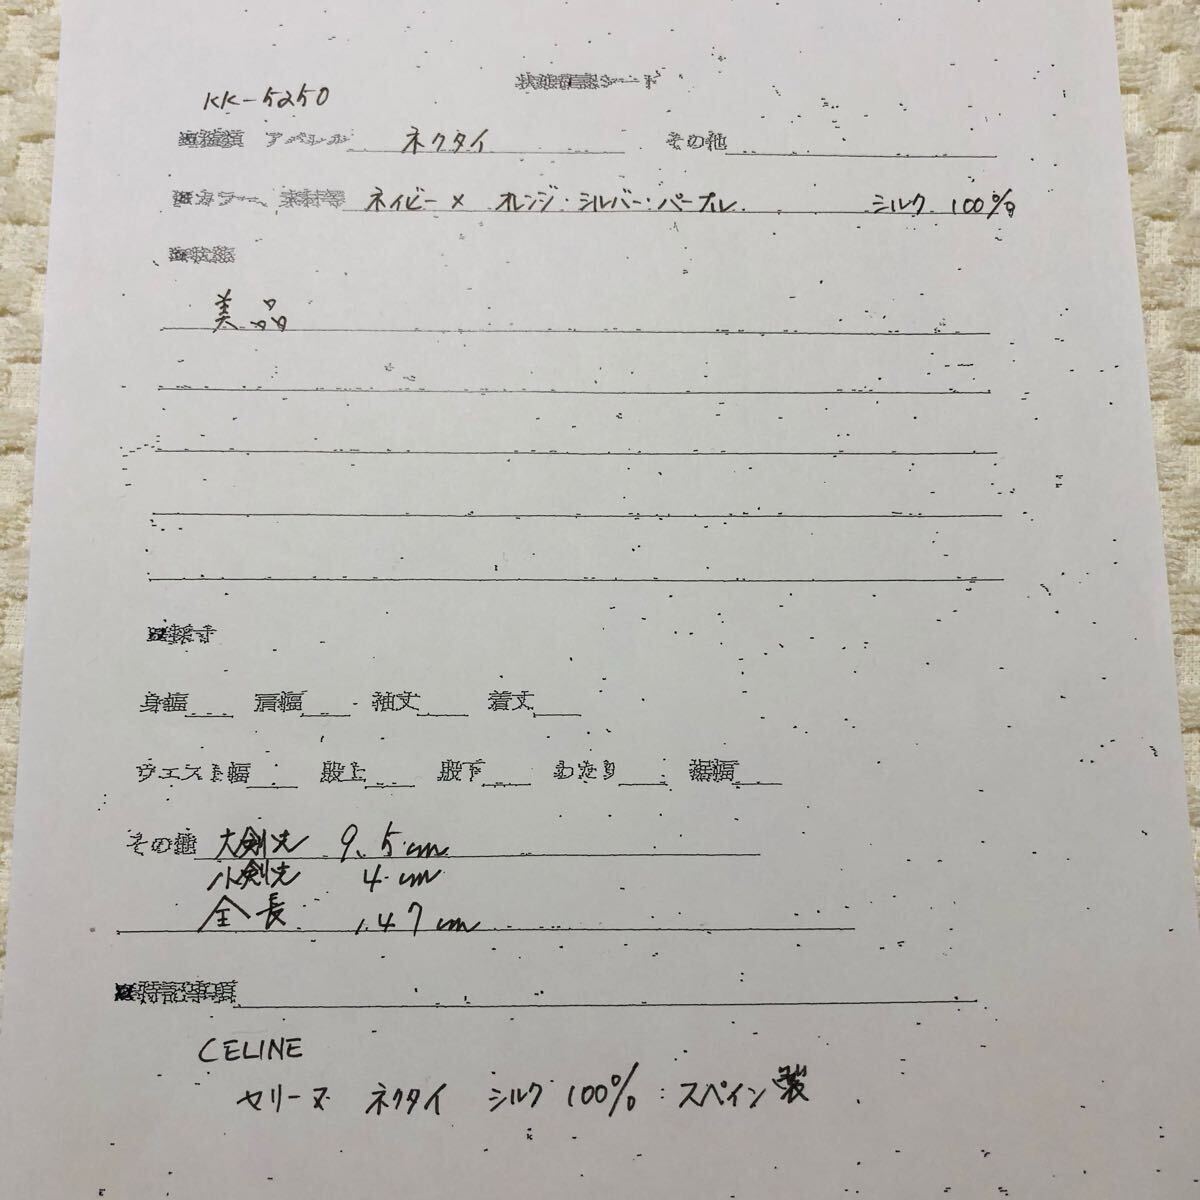 状態確認シート
KK-5250
■種類 アパレル ネクタイ その他
■カラー、素材等 ネイビー× オレンジ・シルバー・パープル シルク 100%
■状態
美品
■採寸
身幅 肩幅 袖丈 着丈
ウエスト幅 股上 股下 わたり 裾幅
その他 大剣先 9.5cm
小剣先 4cm
全長 147cm
■特記事項
CELINE
セリーヌ ネクタイ シルク 100% スペイン製